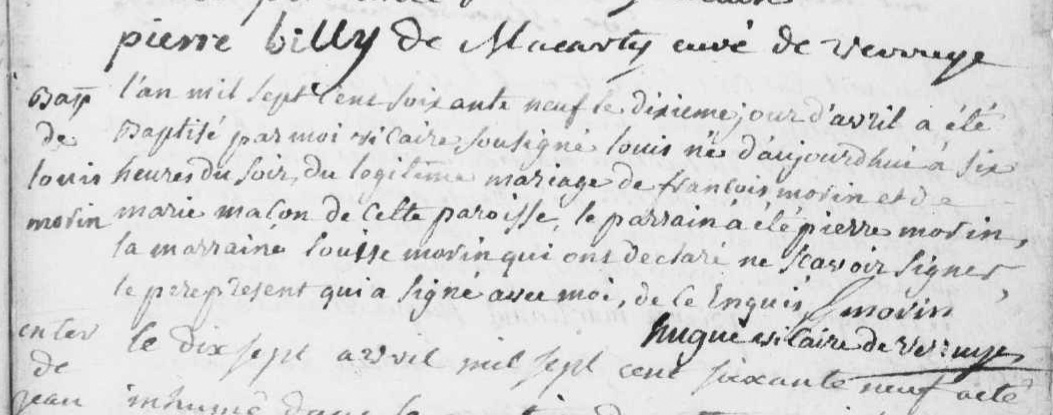 pierre billy de Macarty curé de verruye
Bap
de
louis
morin
l'an mil sept cent soixante neuf le dixieme jour d'avril a été
Baptisé par moi vicaire sousigné louis né d'aujourdhui à six
heures du soir, du legitime mareage de francois morin et de
marie macon de cette paroisse, le parrain a été pierre morin,
la marraine louise morin qui ont declaré ne scavoir signer
le pere present qui a signé avec moi, de ce Enquis, f morin
hugué vicaire de verruye
enter
de
jean
le dix sept avril mil sept cent soixante neuf a été
inhumé dans le